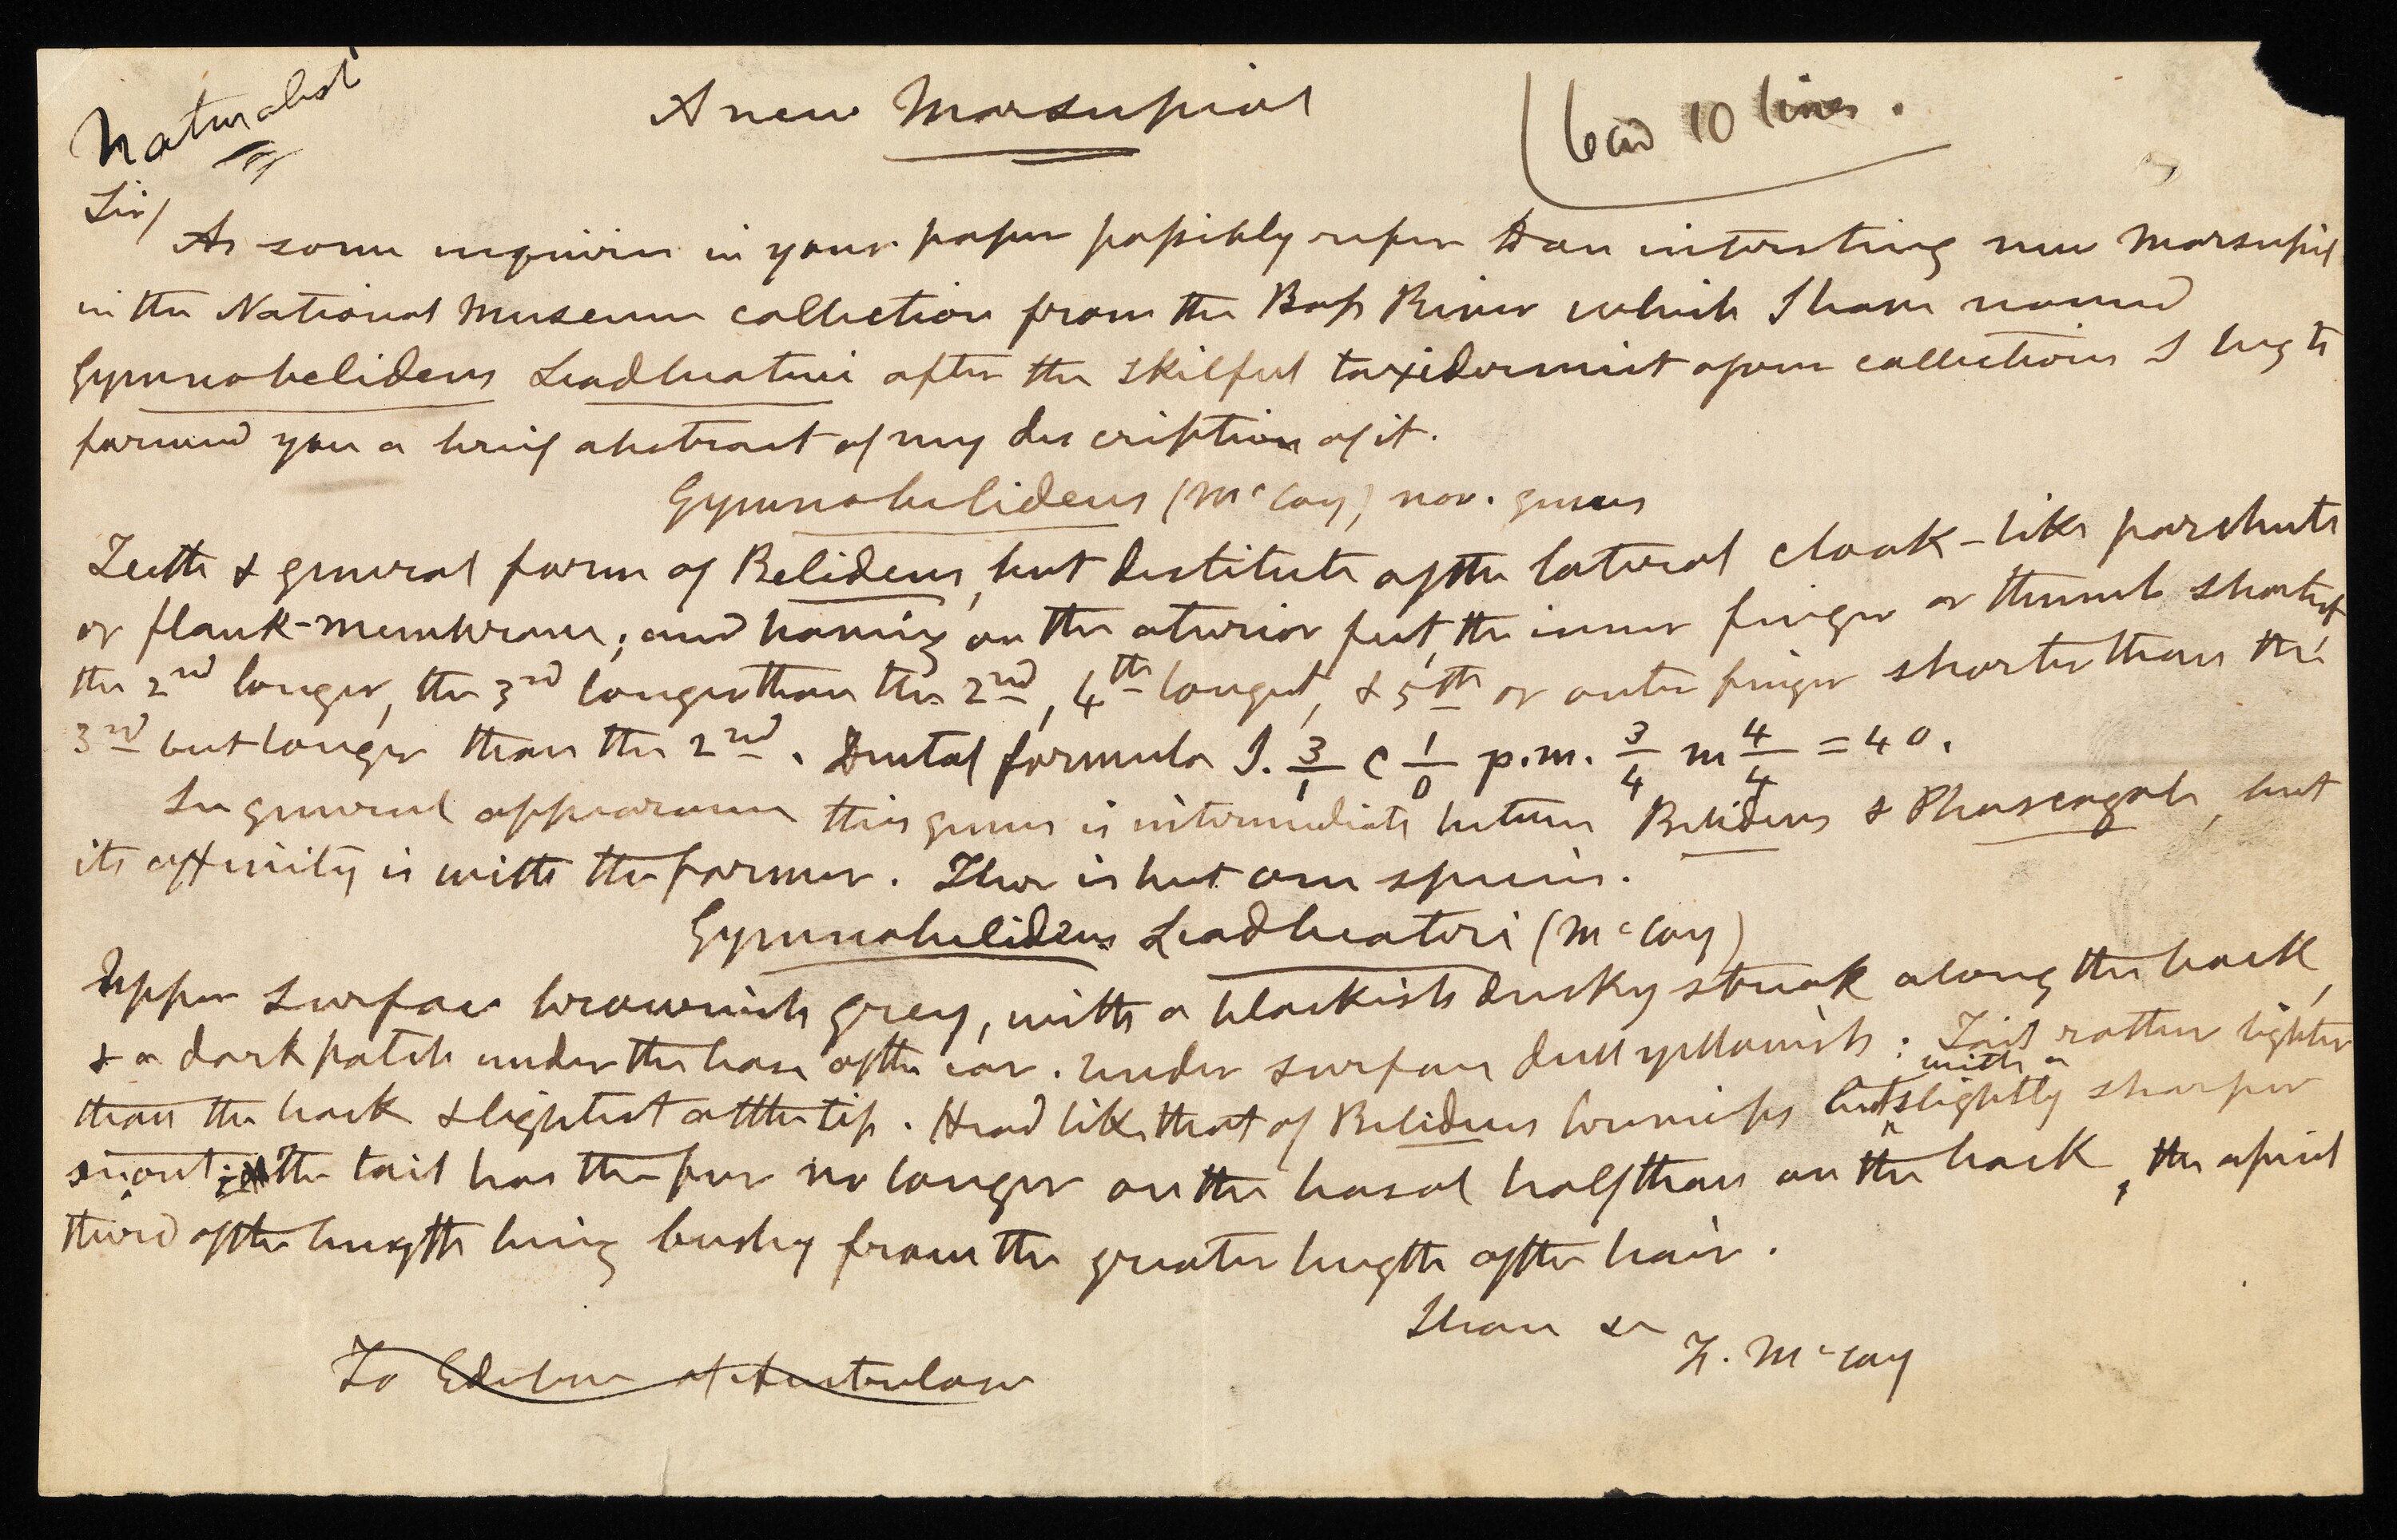 Naturalist
A new Marsupial
10 lines.
Sir/
As some inquiries in your paper possibly refer to an interesting new Marsupial
in the National Museum collection from the Bass River which I have named
Gymnobelideus Leadbeateri after the skilful taxidermist of our collections I beg to
forward you a brief abstract of my description of it.
Gymnobelideus (McCoy) nov. genus
Teeth & general form of Belideus, but destitute of the lateral cloak-like parchute
or flank-membrane; and having on the aterior feet, the inner finger or thumb shortest
the 2nd longer, the 3rd longer than the 2nd, 4th longest, & 5th or outer finger shorter than the
3rd but longer than the 2nd. Dental formula I. 3/1 C 1/0 p.m. 3/4 m 4/4 = 40.
In general appearance this genus is intermediate between Belideus & Phascogale, but
its affinity is with the former. There is but one species.
Gymnobelideus Leadbeateri (McCoy)
Upper surface brownish grey, with a blackish dusky streak along the back,
& a dark patch under the base of the ear. Under surface dull yellowish: Tail rather lighter
than the back & lightest at the tip. Head like that of Belideus breviceps but with a slightly sharper
snout; the tail has the fur no longer on the basal half than on the back, the apical
third of the length being bushy from the greater length of the hair.
I have &c
F. McCoy
To Editor of Australasian